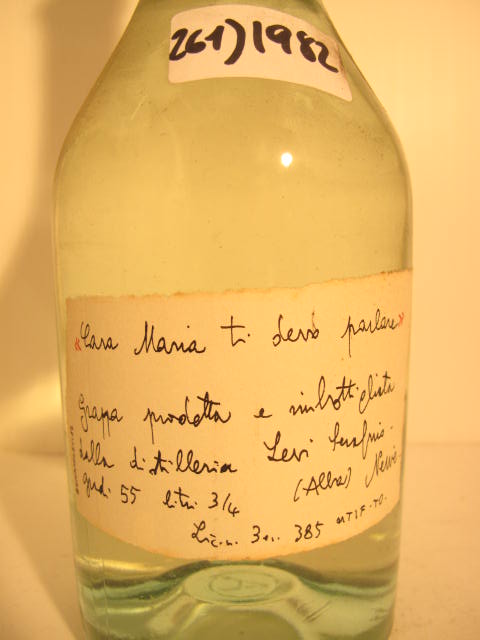 261) 1982
«Cara Maria ti devo parlare»
Grappa prodotta e imbottigliata
dalla distilleria Levi Serafino.
gradi 55 litri 3/4 (Alba) Neive
Lic. n. 385 UTIF. TO.